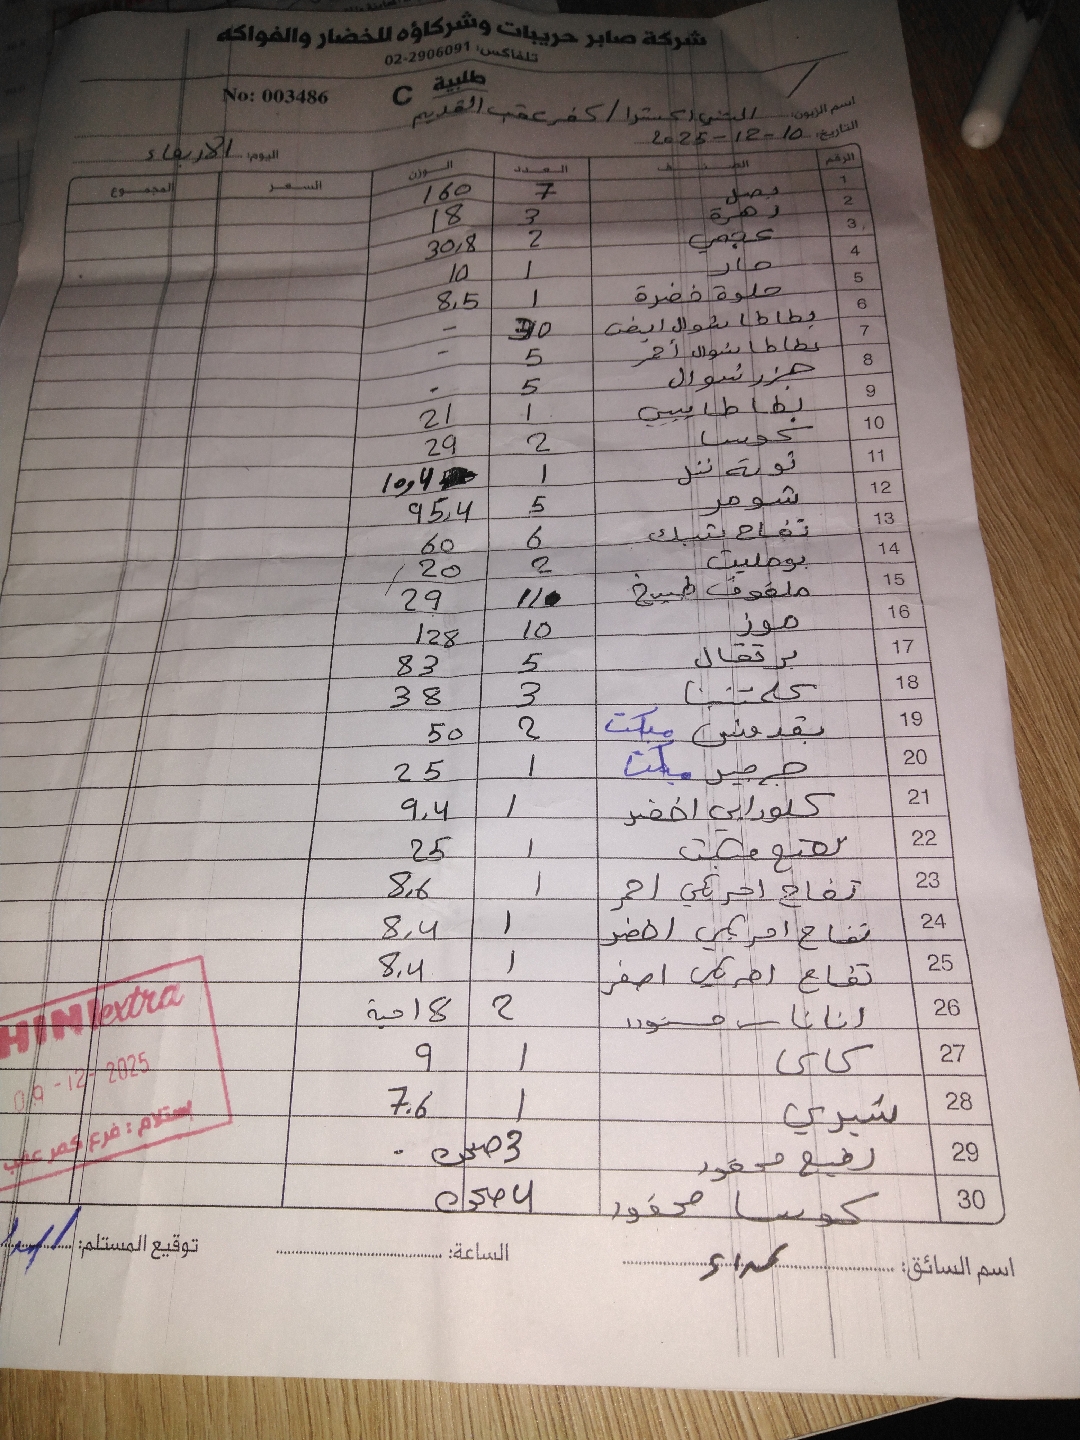 شركة صابر حريبات وشركاؤه للخضار والفواكه
تلفاكس: 02-2906091
طلبية C
No: 003486
اسم الزبون: اكسترا / كفر عقب القديم
التاريخ: 10-12-2025
اليوم: الاربعاء
الرقم الصنف العدد الوزن السعر المجموع
1 بصل 7 160
2 زهرة 3 18
3 عجمي 2 30,8
4 حار 1 10
5 حلوة خضرة 1 8,5
6 بطاطا شوال ابيض 30 -
7 بطاطا شوال أحمر 5 -
8 جزر شوال 5 -
9 بطاطا بيبي 1 21
10 كوسا 2 29
11 1 10,4
12 شومر 5 95,4
13 تفاح شبك 6 60
14 بوملينت 2 20
15 ملفوف طبيخ 11 29
16 موز 10 128
17 برتقال 5 83
18 كلمنتينا 3 38
19 بقدونس مبكت 2 50
20 جرجير مبكت 1 25
21 كلورابي اخضر 1 9,4
22 نعنع مبكت 1 25
23 تفاح امريكي احمر 1 8,6
24 تفاح امريكي اخضر 1 8,4
25 تفاح امريكي اصفر 1 8,4
26 اناناس 2 18 حبة
27 كاكا 1 9
28 شيري 1 7.6
29 رفيع محفور 3 صحن -
30 كوسا محفور 4 صحن
HINI extra
09-12-2025
استلام: فرع كفر عقب
اسم السائق:
الساعة:
توقيع المستلم: